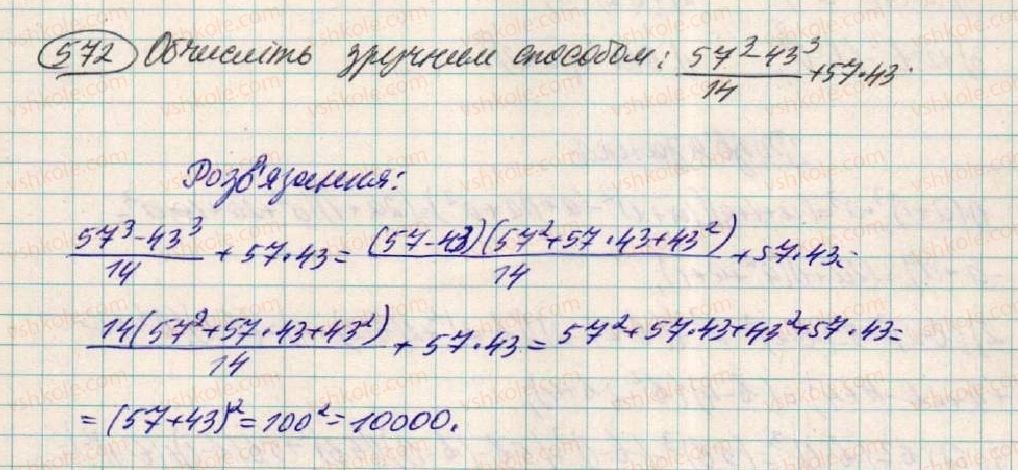 572 Обчисліть зручним способом: (57³-43³)/14 + 57·43.
Розв'язання:
(57³-43³)/14 + 57·43 = (57-43)(57²+57·43+43²)/14 + 57·43 =
14(57²+57·43+43²)/14 + 57·43 = 57²+57·43+43²+57·43 =
= (57+43)² = 100² = 10000.